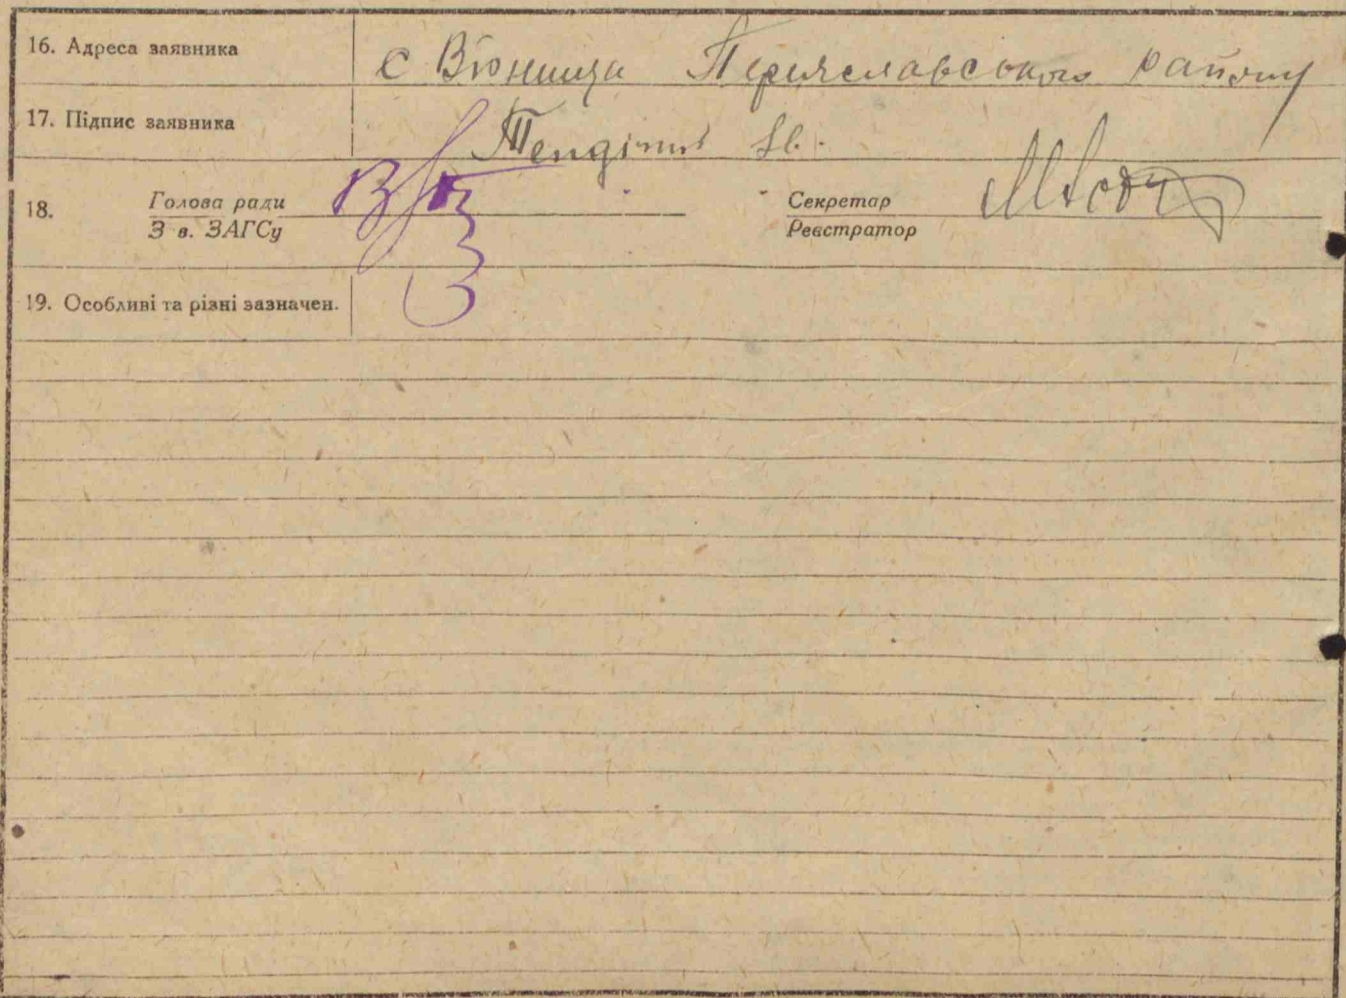 16. Адреса заявника с Вʼюнища Переяславського району
17. Підпис заявника
18. Голова ради Секретар
З в. ЗАГСу Реєстратор
19. Особливі та різні зазначен.